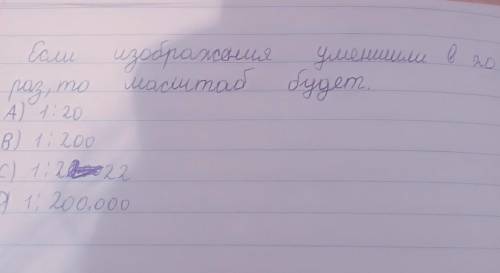 Если изображения уменшили в 20
раз, то масштаб будет.
A) 1:20
B) 1:200
C) 1:22
) 1:200.000